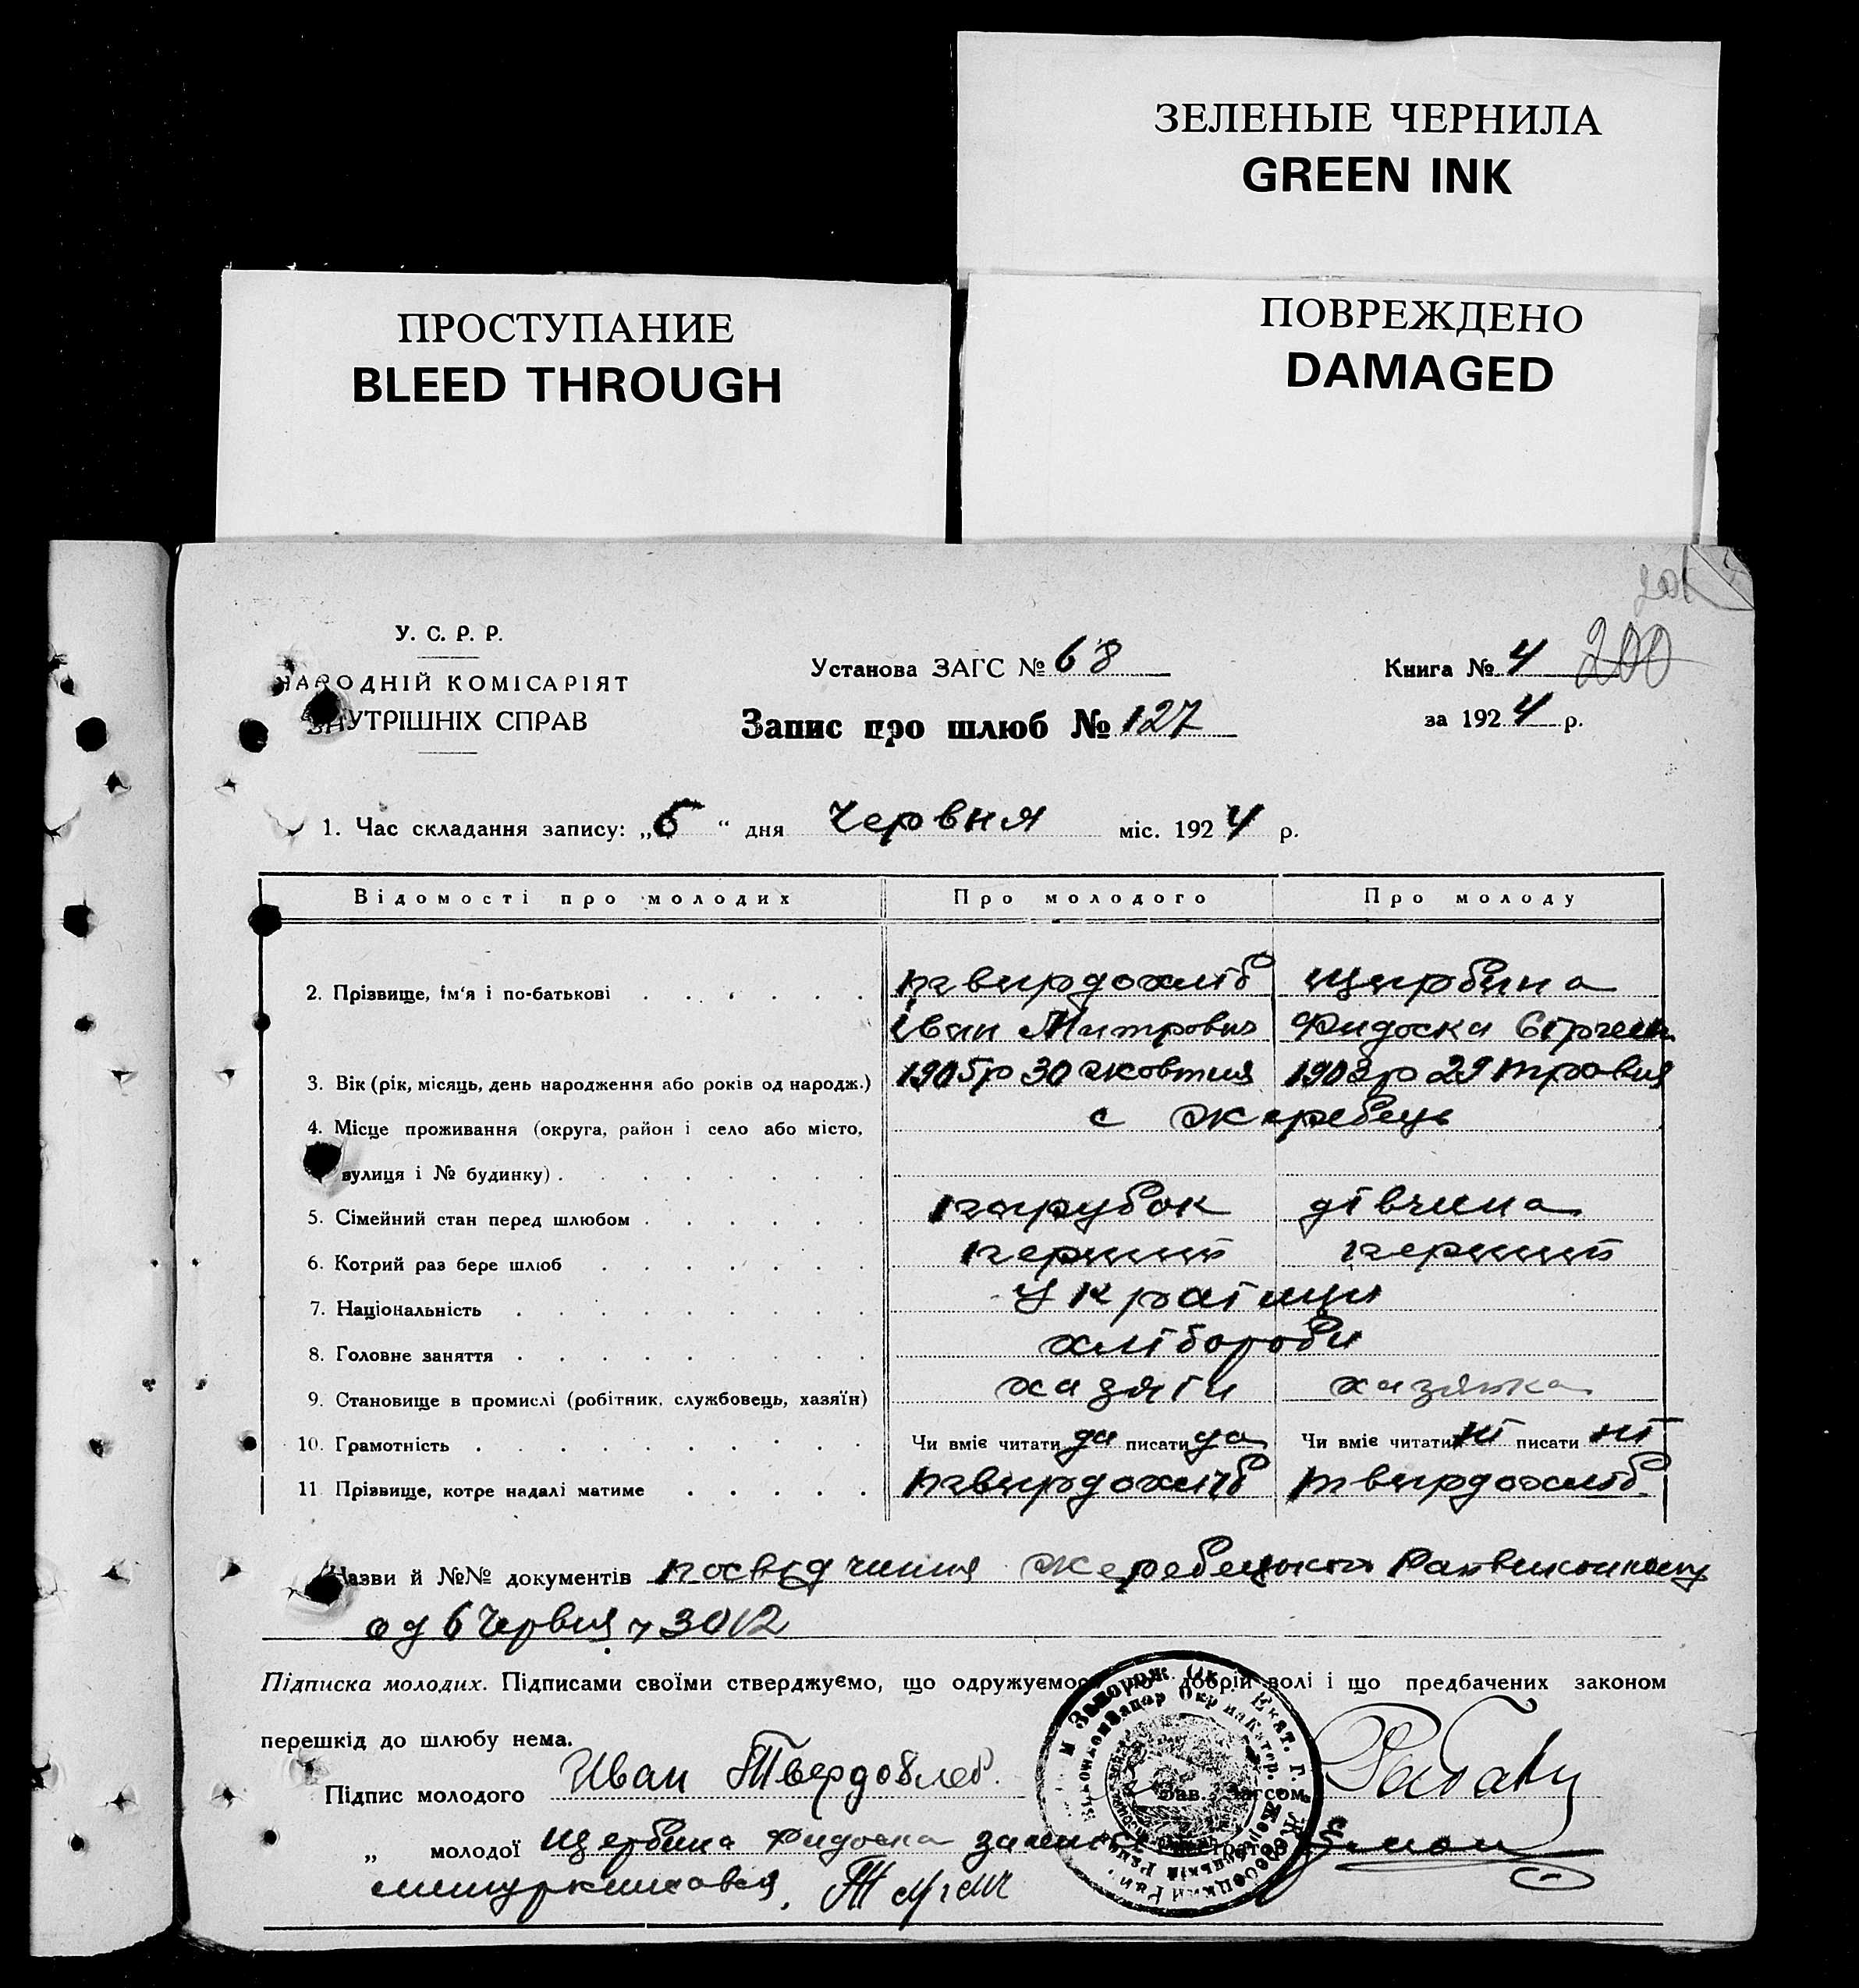 ЗЕЛЕНЫЕ ЧЕРНИЛА
GREEN INK
ПРОСТУПАНИЕ
BLEED THROUGH
ПОВРЕЖДЕНО
DAMAGED
200
У. С. Р. Р.
НАРОДНІЙ КОМІСАРІЯТ
ВНУТРІШНІХ СПРАВ
Установа ЗАГС № 68
Запис про шлюб № 127
Книга № 4
за 1924 р.
1. Час складання запису: „6“ дня Червня міс. 1924 р.
Відомості про молодих Про молодого Про молоду
2. Прізвище, ім'я і по-батькові твирдохліб щирбина
іван Митрович Фидоска
3. Вік (рік, місяць, день народження або років од народж.) 1905р 30 жовтня 1903р 29 травня
4. Місце проживання (округа, район і село або місто, с жеребець
вулиця і № будинку)
5. Сімейний стан перед шлюбом парубок дівчина
6. Котрий раз бере шлюб перший перший
7. Національність Українци
8. Головне заняття хлібороби
9. Становище в промислі (робітник, службовець, хазяїн) хазяїн хазяйка
10. Грамотність Чи вміє читати да писати да Чи вміє читати ні писати ні
11. Прізвище, котре надалі матиме твирдохліб твирдохліб
Назви й №№ документів посвідчення Жеребецького Райвиконкому
од 6 Червня 3012
Підписка молодих. Підписами своїми стверджуємо, що одружуємос добрій волі і що предбачених законом
перешкід до шлюбу нема.
Підпис молодого Иван Твердохлеб.
Зав. Загсом
„ молодої щербина Фидоска за